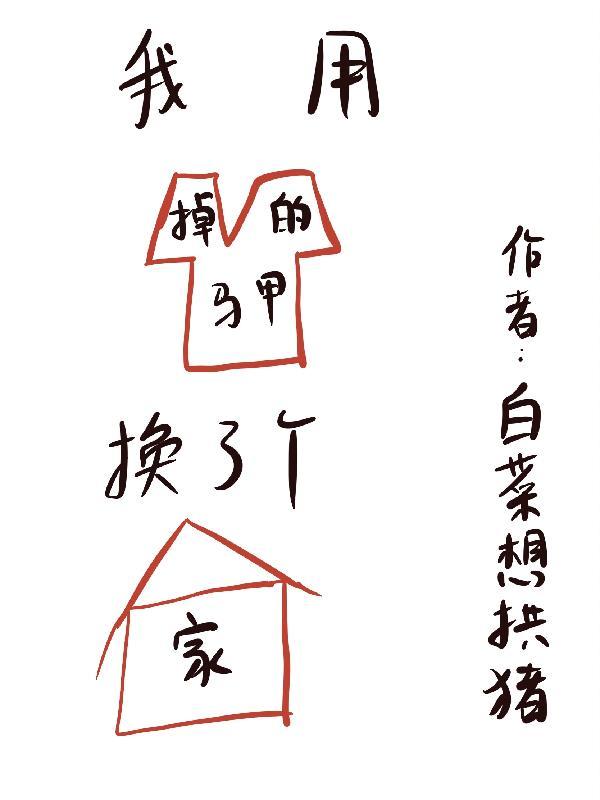 我用
掉的
马甲
换了个
家
作者:白菜想拱猪